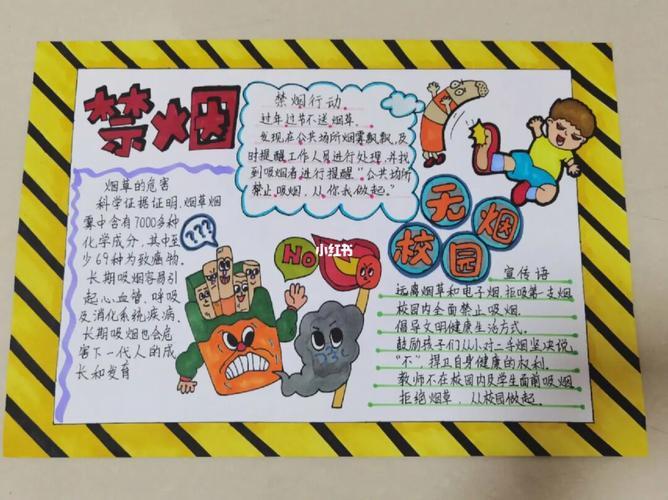 禁烟
禁烟行动
过年过节不送烟草。
发现在公共场所烟雾飘飘,及
时提醒工作人员进行处理,并找
到吸烟者进行提醒“公共场所
禁止吸烟,从你我做起。”
无烟
校园
烟草的危害
科学证据证明,烟草烟
雾中含有7000多种
化学成分,其中至
少69种为致癌物。
长期吸烟容易引
起心血管、呼吸
及消化系统疾病,
长期吸烟也会危
害下一代人的成
长和发育
???
NO
小红书
宣传语
远离烟草和电子烟,拒吸第一支烟
校园内全面禁止吸烟.
倡导文明健康生活方式.
鼓励孩子们从小对二手烟坚决说
“不”,捍卫自身健康的权利.
教师不在校园内及学生面前吸烟
拒绝烟草,从校园做起.